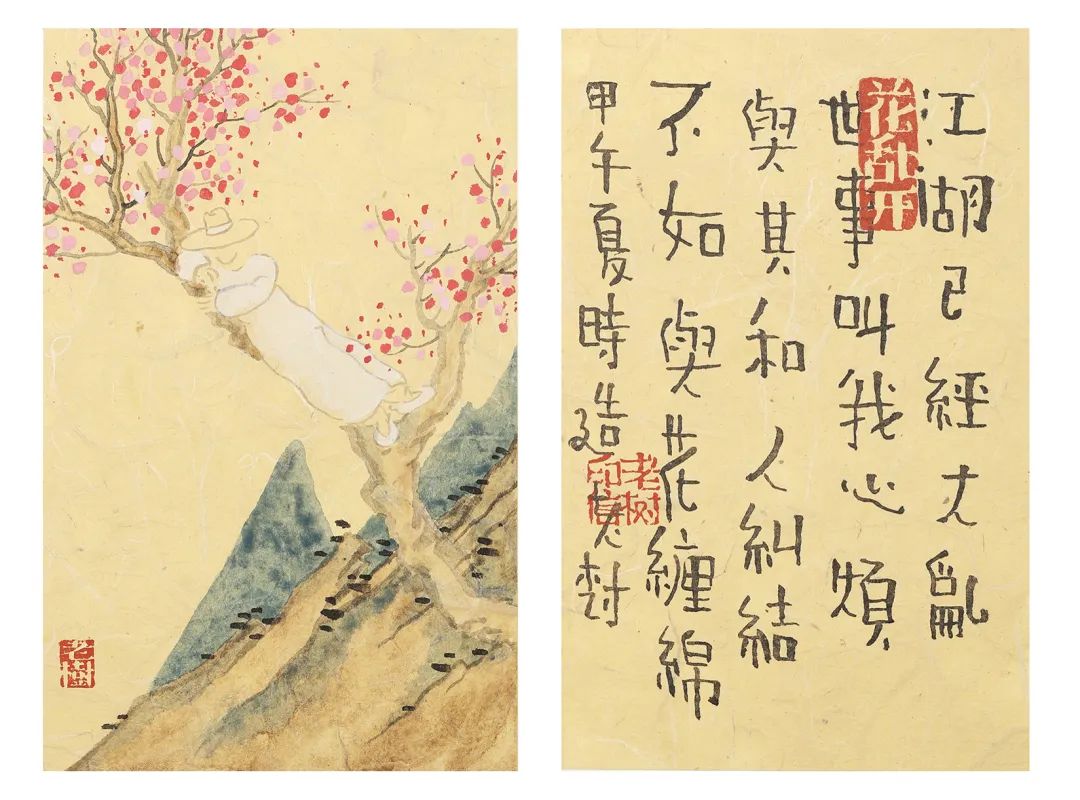 江湖已經太亂
世事叫我心煩
與其和人糾結
不如與花纏綿
甲午夏時造 老樹
花乱开
老树印信
老樹